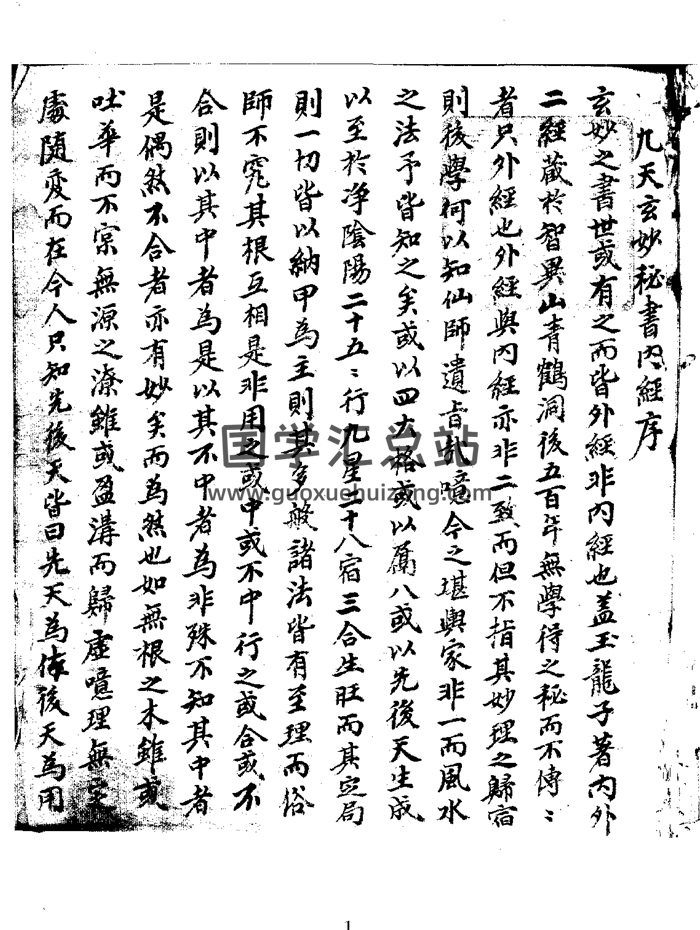 九天玄妙秘書內經序
玄妙之書世或有之而皆外經非內經也盖玉龍子著內外
二經藏於智異山青鶴洞後五百年無學得之秘而不傳〻
者只外經也外經與內經亦非二致而但不指其妙理之歸宿
則後學何以知仙師遺旨哉噫今之堪輿家非一而風水
之法予皆知之矣或以四大格或以八或以先後天生成
以至於净陰陽二十五〻行九星二十八宿三合生旺而其定局
則一切皆以納甲為主則其多般諸法皆有至理而俗
師不究其根互相是非用之或中或不中行之或合或不
合則以其中者為是以其不中者為非殊不知其中者
是偶然不合者亦有妙矣而為然也如無根之木雖或
吐華而不宲無源之潦雖或盈溝而歸虛噫理無定
處隨変而在今人只知先後天皆曰先天為体後天為用
国学汇总站
www.guoxuehuizong.com
1